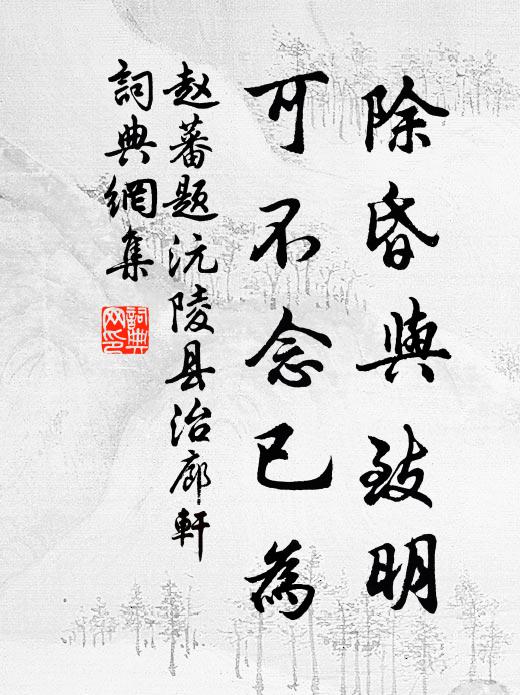 除昏与致明
可不念已為
赵蕃题沅陵县治廊軒
詞典網集
詞典网印